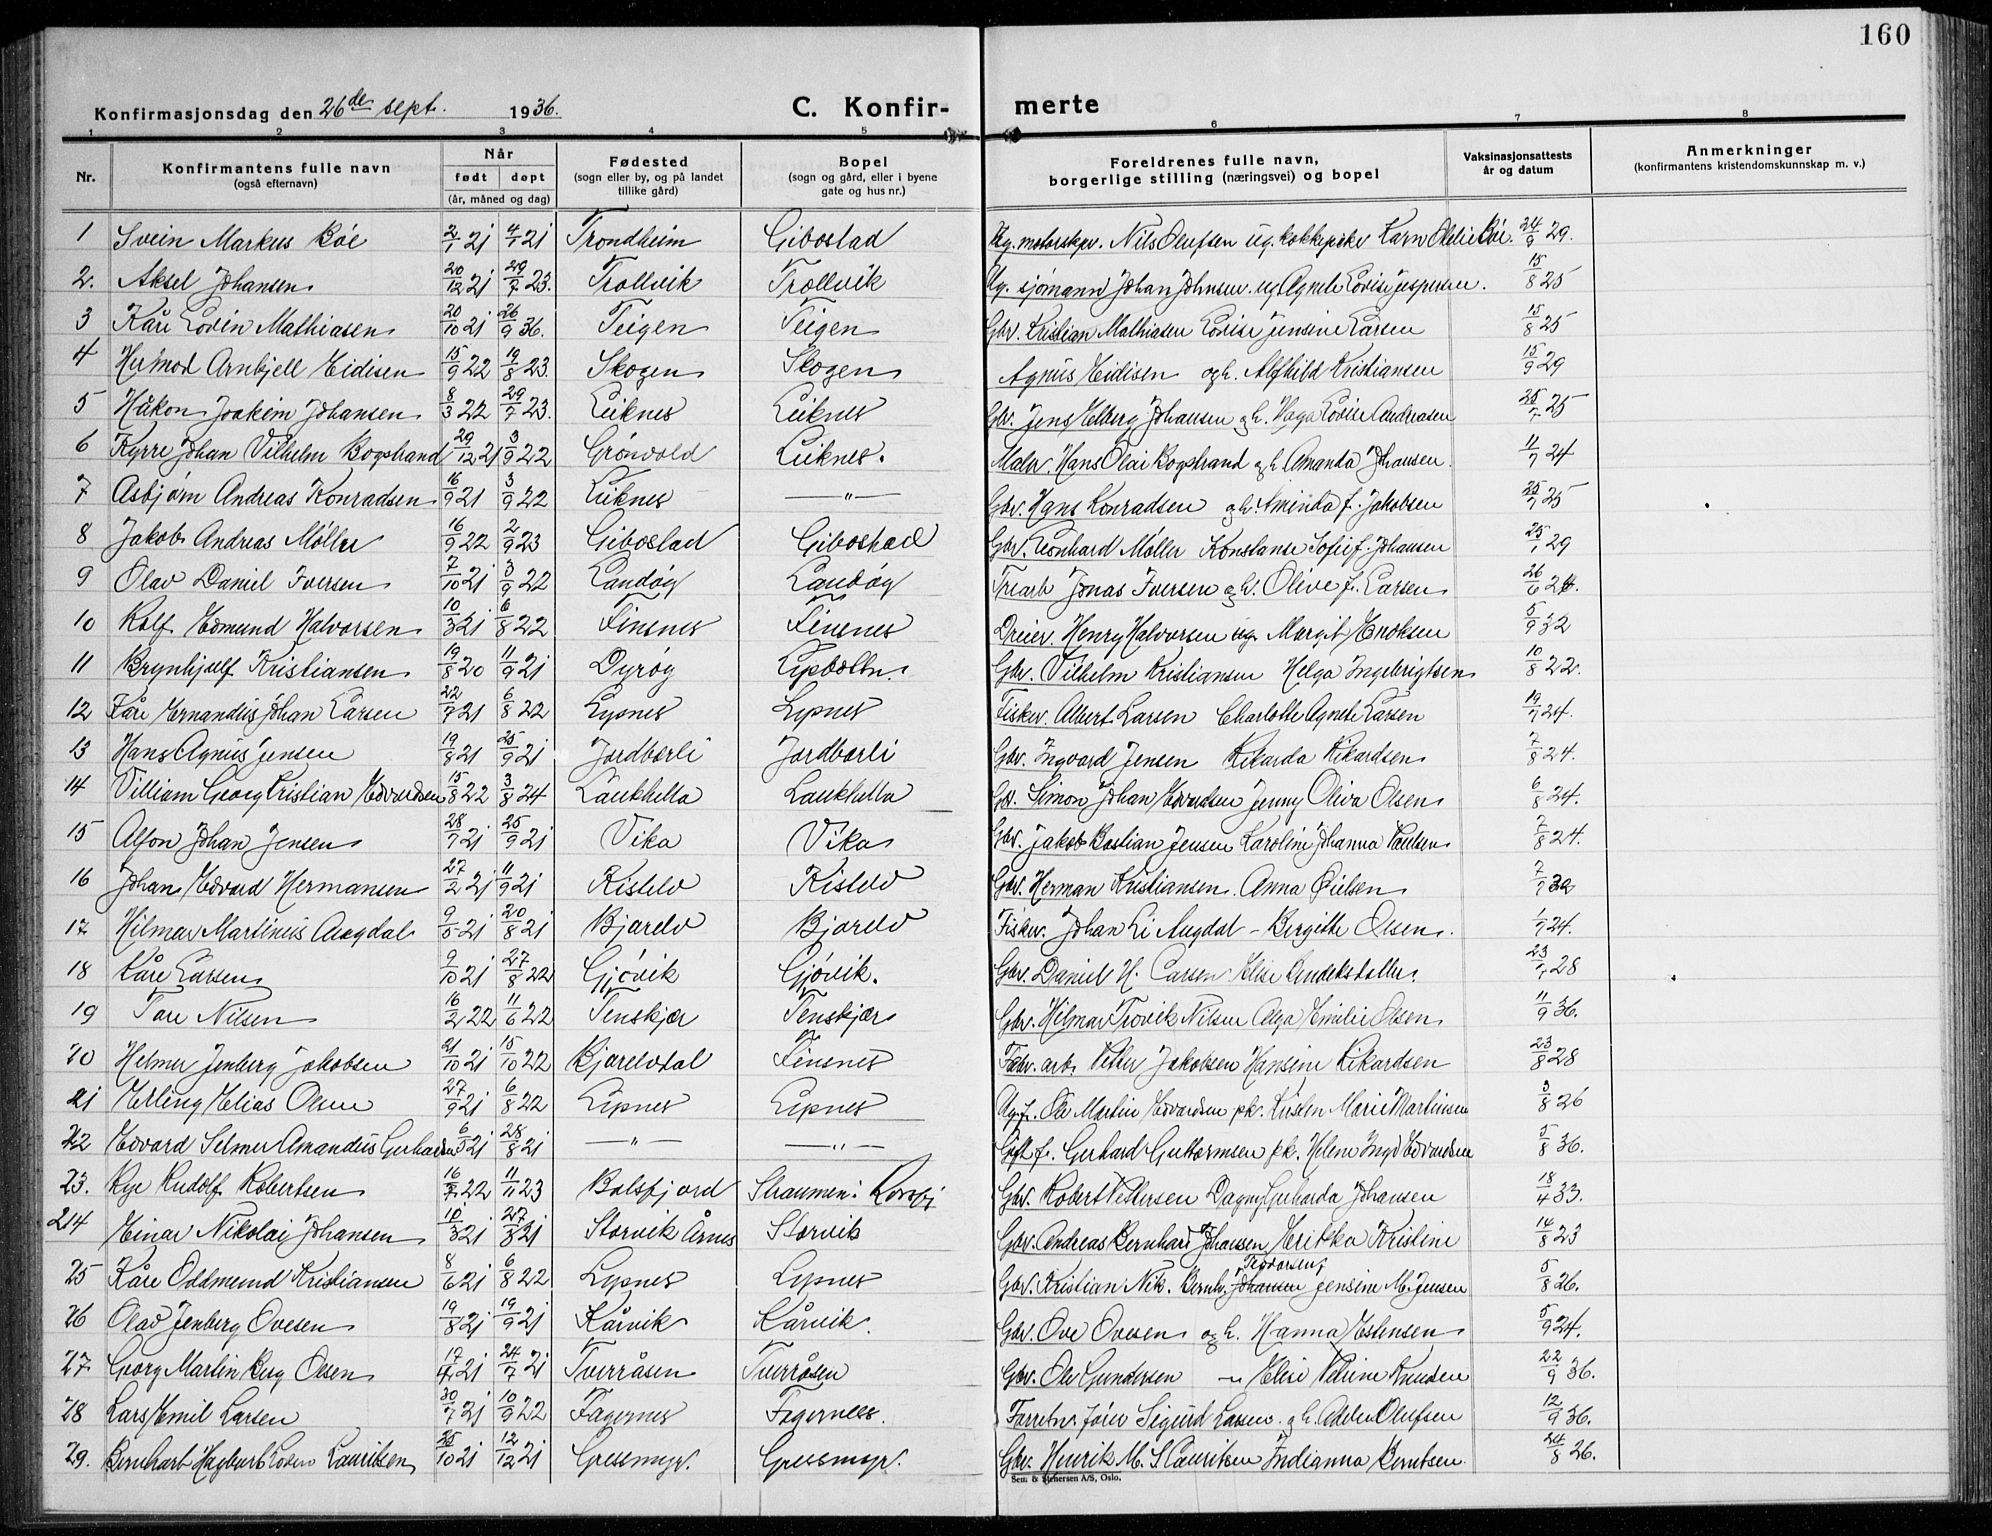 160
Konfirmasjonsdag den 26de sept. 1936.
C. Konfir- merte
1 2 3 4 5 6 7 8
Nr. Konfirmantens fulle navn (også efternavn) Når født døpt (år, måned og dag) Fødested (sogn eller by, og på landet tillike gård) Bopel (sogn og gård, eller i byene gate og hus nr.) Foreldrenes fulle navn, borgerlige stilling (næringsvei) og bopel Vaksinasjonsattests år og datum Anmerkninger (konfirmantens kristendomskunnskap m. v.)
1 Svein Markus Bøe 2/1 21 4/1 21 Trondheim Gibostad Ug. motorskpr. Nils Olufsen ug. kokkepike Karn Bøe. 24/9 29.
2. Aksel Johansen 20/12 21 29/7 23. Trollvik Trollvik Ug. sjømann Johan Johnsen ug Agnete Lovise Jespersen. 15/8 25
3 Kåre Edvin Mathiasen 20/10 21 26/9 36. Teigen Teigen Gbr. Kristian Mathiasen Lovise Jensine Larsen 15/8 25
4 Hermod Arnkjell Eidisen 15/9 22 19/8 23. Skogen Skogen Agnus Eidisen og h. Alfhild Kristiansen 15/9 29
5 Håkon Joakim Johansen 8/3 22 29/7 23. Leiknes Leiknes Gbr. Jens Elberg Johansen og h. Lovise Andreasen 25/7 25
6 Kyrre Johan Vilhelm Bogstrand 29/12 21 3/9 22 Grønvold Leiknes. Maler. Hans Olai Bogstrand og h. Amanda Johansen. 11/7 24
7 Asbjørn Andreas Konradsen 16/9 21 3/9 22 Leiknes —"— Gbr. Hans Konradsen og h. Aminda f. Jakobsen 25/7 25
8 Jakob Andreas Møller 16/9 22 2/9 23 Gibostad Gibostad Gbr. Leonhard Møller Konstanse Sofie f. Johansen 25/1 29
9 Olav Daniel Iversen 7/10 21 3/9 22 Landøy Landøy Trearb Jonas Iversen og h. Olive f. Larsen 26/6 24.
10 Rolf Edmund Halvorsen 10/3 21 6/8 22 Finsnes Finsnes Dreier. Henry Halvorsen ug. Margit Enoksen 5/9 32
11 Brynhjulf Kristiansen 19/8 20 11/9 21 Dyrøy Gbr. Vilhelm Kristiansen Helga Ingebrigtsen 10/8 22.
12 Kåre Ernandus Johan Larsen 22/9 21 6/8 22 Lypnes Lypnes Fisker. Albert Larsen Charlotte Agnete Larsen 19/7 24.
13 Hans Agnus Jensen 19/8 21 25/9 21 Jordbærli Jordbærli Gbr. Ingvard Jensen Rikarda Rikardsen 7/8 24.
14 Villiam Georg Kristian Edvardsen 15/8 22 3/8 24 Laukhella Laukhella Gbr. Simon Johan Edvardsen Jenny Oliva Olsen 6/8 24.
15 Alfon Johan Jensen 28/7 21 25/9 21 Vika Vika Gbr. Jakob Bastian Jensen Karoline Johanna Paulsen 7/8 24.
16 Johan Edvard Hermansen 27/2 21 11/9 21 Kistelv Kistelv Gbr. Herman Kristiansen. Anna 7/7 32
17 Hilmar Martinus Augdal 9/5 21 20/8 21 Bjorelv Bjorelv Fisker. Johan Li Augdal – Bergitte Olsen. 1/9 24.
18 Kåre Larsen 9/10 21 27/8 22 Gjøvik Gjøvik. Gbr. Daniel H. Larsen Elise 23/1 28
19 Tore Nilsen 16/2 22 11/6 22 Tenskjær Tenskjær Gbr. Hilmar Trovik Nilsen Alga Emilie Olsen 11/9 36.
20 Helmer Jenberg Jakobsen 21/10 21 15/10 22 Bjorelvdal Finsnes Fabr. arb. Petter Jakobsen Hansine Rikardsen 23/8 28
21 Erling Elias Olsen 27/9 21 6/8 22 Lypnes Lypnes Ug. f. Ole Martin Edvardsen pk. Kirsten Marie Martinsen 3/8 26
22 Edvard Selmer Amandus Gerhardsen 6/5 21 28/8 21 —"— —"— Gift f. Gerhard Guttormsen pk. Helene Inga Edvardsen 5/8 36.
23. Rye Rudolf Robertsen 16/7 22 11/11 23 Balsfjord Straumen i Gbr. Robert Pettersen Dagny Gerharda Johansen 18/4 33.
24 Einar Nikolai Johansen 10/3 21 27/8 21 Storvik Årnes Storvik Gbr. Andreas Bernhard Johansen Erikka Kristine 14/8 23
25 Kåre Oddmund Kristiansen 8/6 21 6/8 22 Lypnes Lypnes Gbr. Kristian Nik. Bernh. Johansen Teodorsen Jensine M. Jensen 5/8 26.
26 Olav Jenberg Ovesen 19/8 21 19/9 21 Kårvik Kårvik. Gbr. Ove Ovesen og h. Hanna Estensen 5/9 24.
27 Georg Martin Berg Olsen 17/4 21 24/7 21 Tverråsen Tverråsen Gbr. Ole Gundersen — Elise Petrine Knudsen 22/9 36.
28 Lars Emil Larsen 30/7 21 10/9 22 Fagernes Fagernes. Sigurd Larsen og h. Olufsen 12/9 36.
29. Bernhart Hagbart Edvin Lauritsen 25/10 21 12/12 21 Gressmyr. Gressmyr. Gbr. Henrik M. S Lauritsen Indianna Berntsen. 24/8 26.
Sem & Stenersen A/S, Oslo.